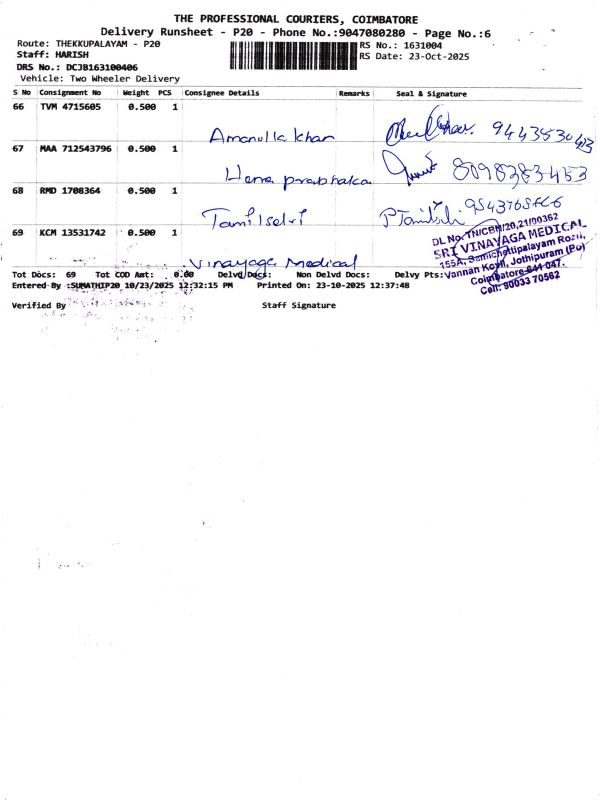 THE PROFESSIONAL COURIERS, COIMBATORE
Delivery Runsheet - P20 - Phone No.:9047080280 - Page No.:6
Route: THEKKUPALAYAM - P20
Staff: HARISH
DRS No.: DCJB163100406
Vehicle: Two Wheeler Delivery
RS No.: 1631004
RS Date: 23-Oct-2025
S No Consignment No Weight PCS Consignee Details Remarks Seal & Signature
66 TVM 4715605 0.500 1
Amanulla khan
67 MAA 712543796 0.500 1
Hema prabhaka 8098383453
68 RMD 1708364 0.500 1
Tamilselvi
69 KCM 13531742 0.500 1
Vinayaga Medical
DL No. TN/CBN/20,21/00362
SRI VINAYAGA MEDICAL
155A, Samichettipalayam Road,
Vannan Kovil, Jothipuram (Po)
Coimbatore-641 047.
Cell: 90033 70562
Tot Docs: 69 Tot COD Amt: 0.00 Delvd Docs: Non Delvd Docs: Delvy Pts:
Entered By :SUMATHIP20 10/23/2025 12:32:15 PM Printed On: 23-10-2025 12:37:48
Verified By Staff Signature